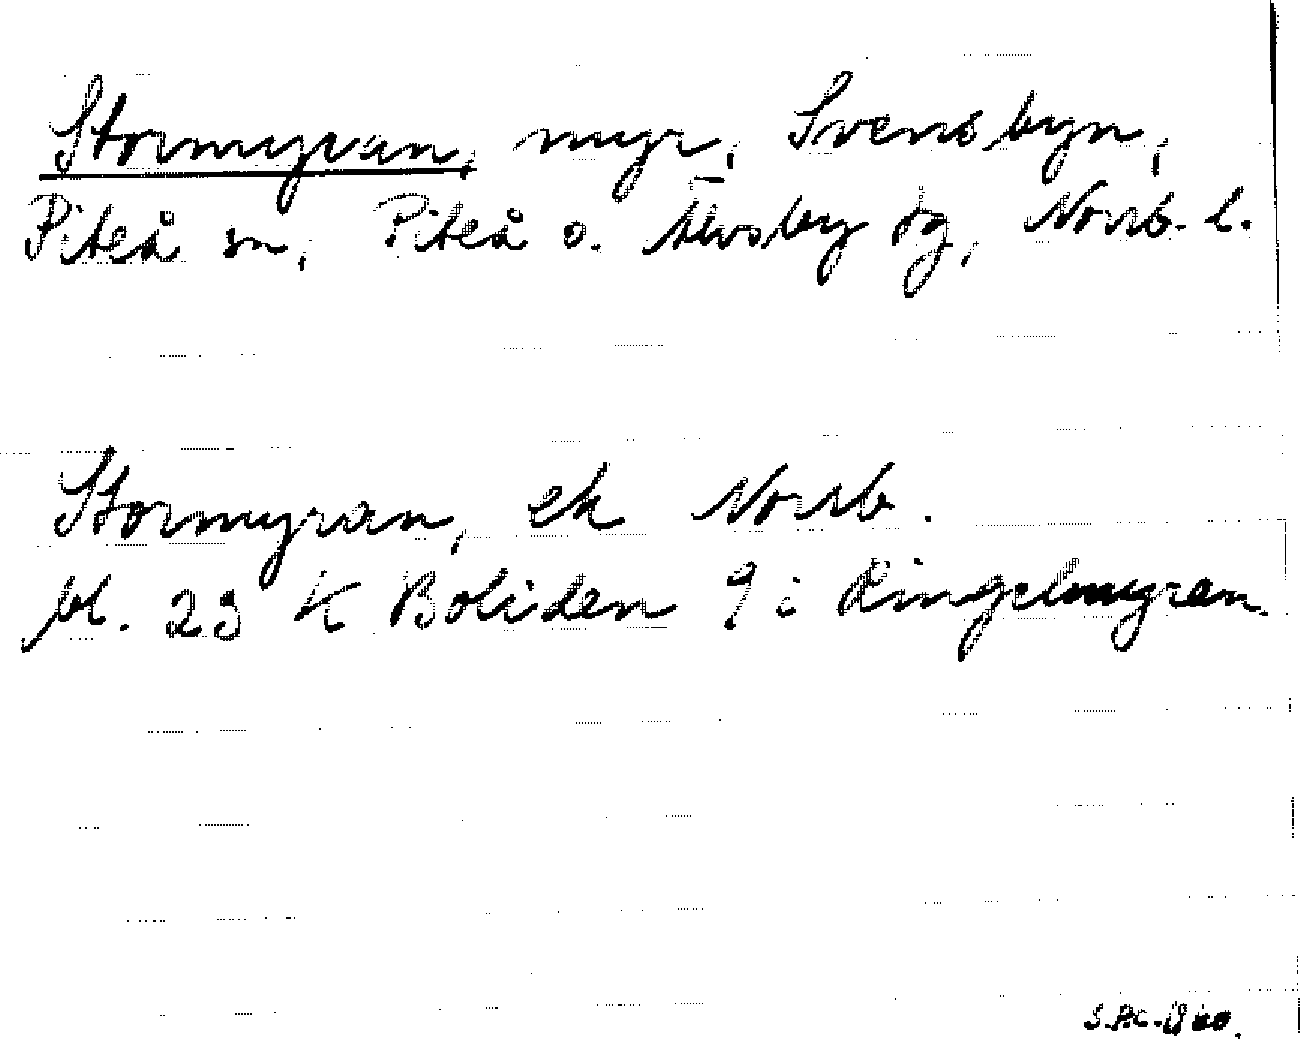 Stormyran, myr, Svensbyn,
Piteå sn, Piteå o. Älvsby dg, Norrb. l.
Stormyran, ek Norrb.
bl. 23 K Boliden 9 i Ringelmyran